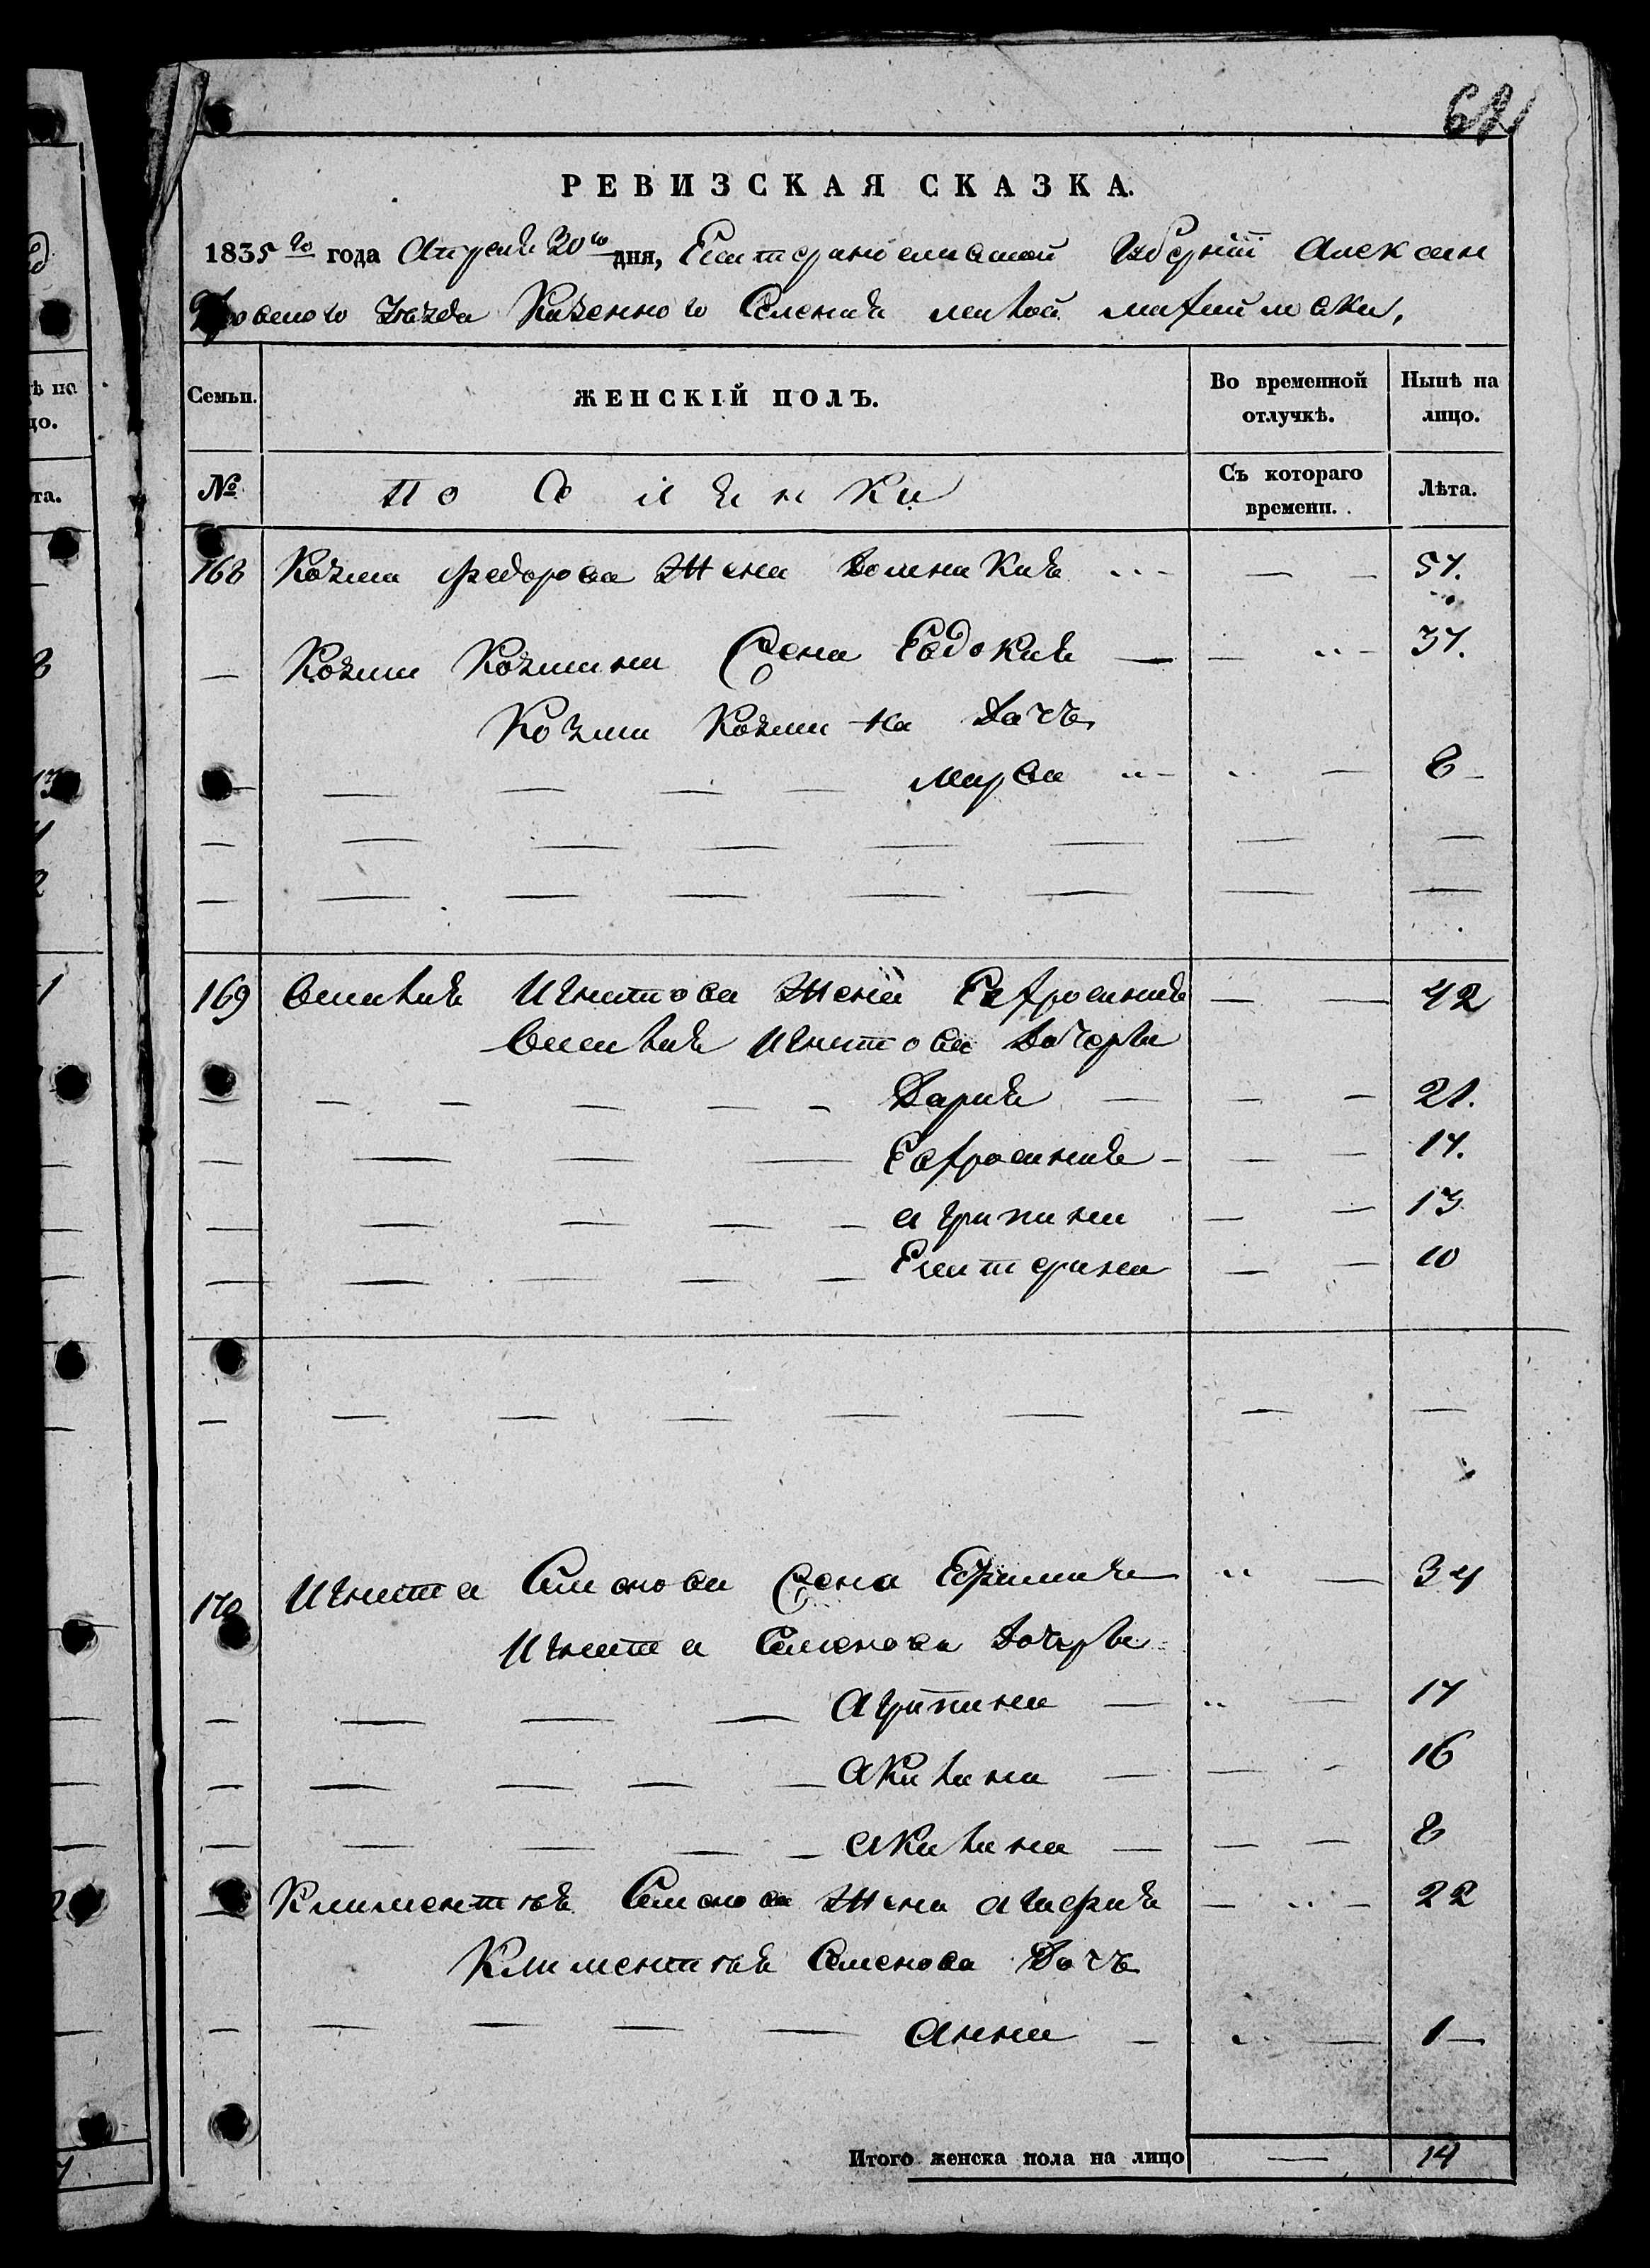 РЕВИЗСКАЯ СКАЗКА.
1835 го года Апреля 30 го дня, Екатеринославской Губернии Алексан
дровского Уезда Казенного Селения малой михайловки,
Семьи. ЖЕНСКІЙ ПОЛЪ. Во временной отлучкѣ. Нынѣ на лицо.
№ Поселянки Съ котораго времени. Лѣта.
168 Козмы Федорова Жена Домникия 57.
Козмы Козмина Жена Евдокия 37.
Козмы Козмина Дочь
марфа 8
169 Игнатова Жена Евфросиния 42
Игнатова Дочери
Дария 21.
Евфросиния 17.
агрипина 13
Екатерина 10
170 Игната Семенова Жена Ефимия 34
Игната Семенова Дочери
Агрипина 17
Акилина 16
акилина 8
Климентия Семенова Жена агафия 22
Климентия Семенова Дочь
Анна 1
Итого женска пола на лицо 14